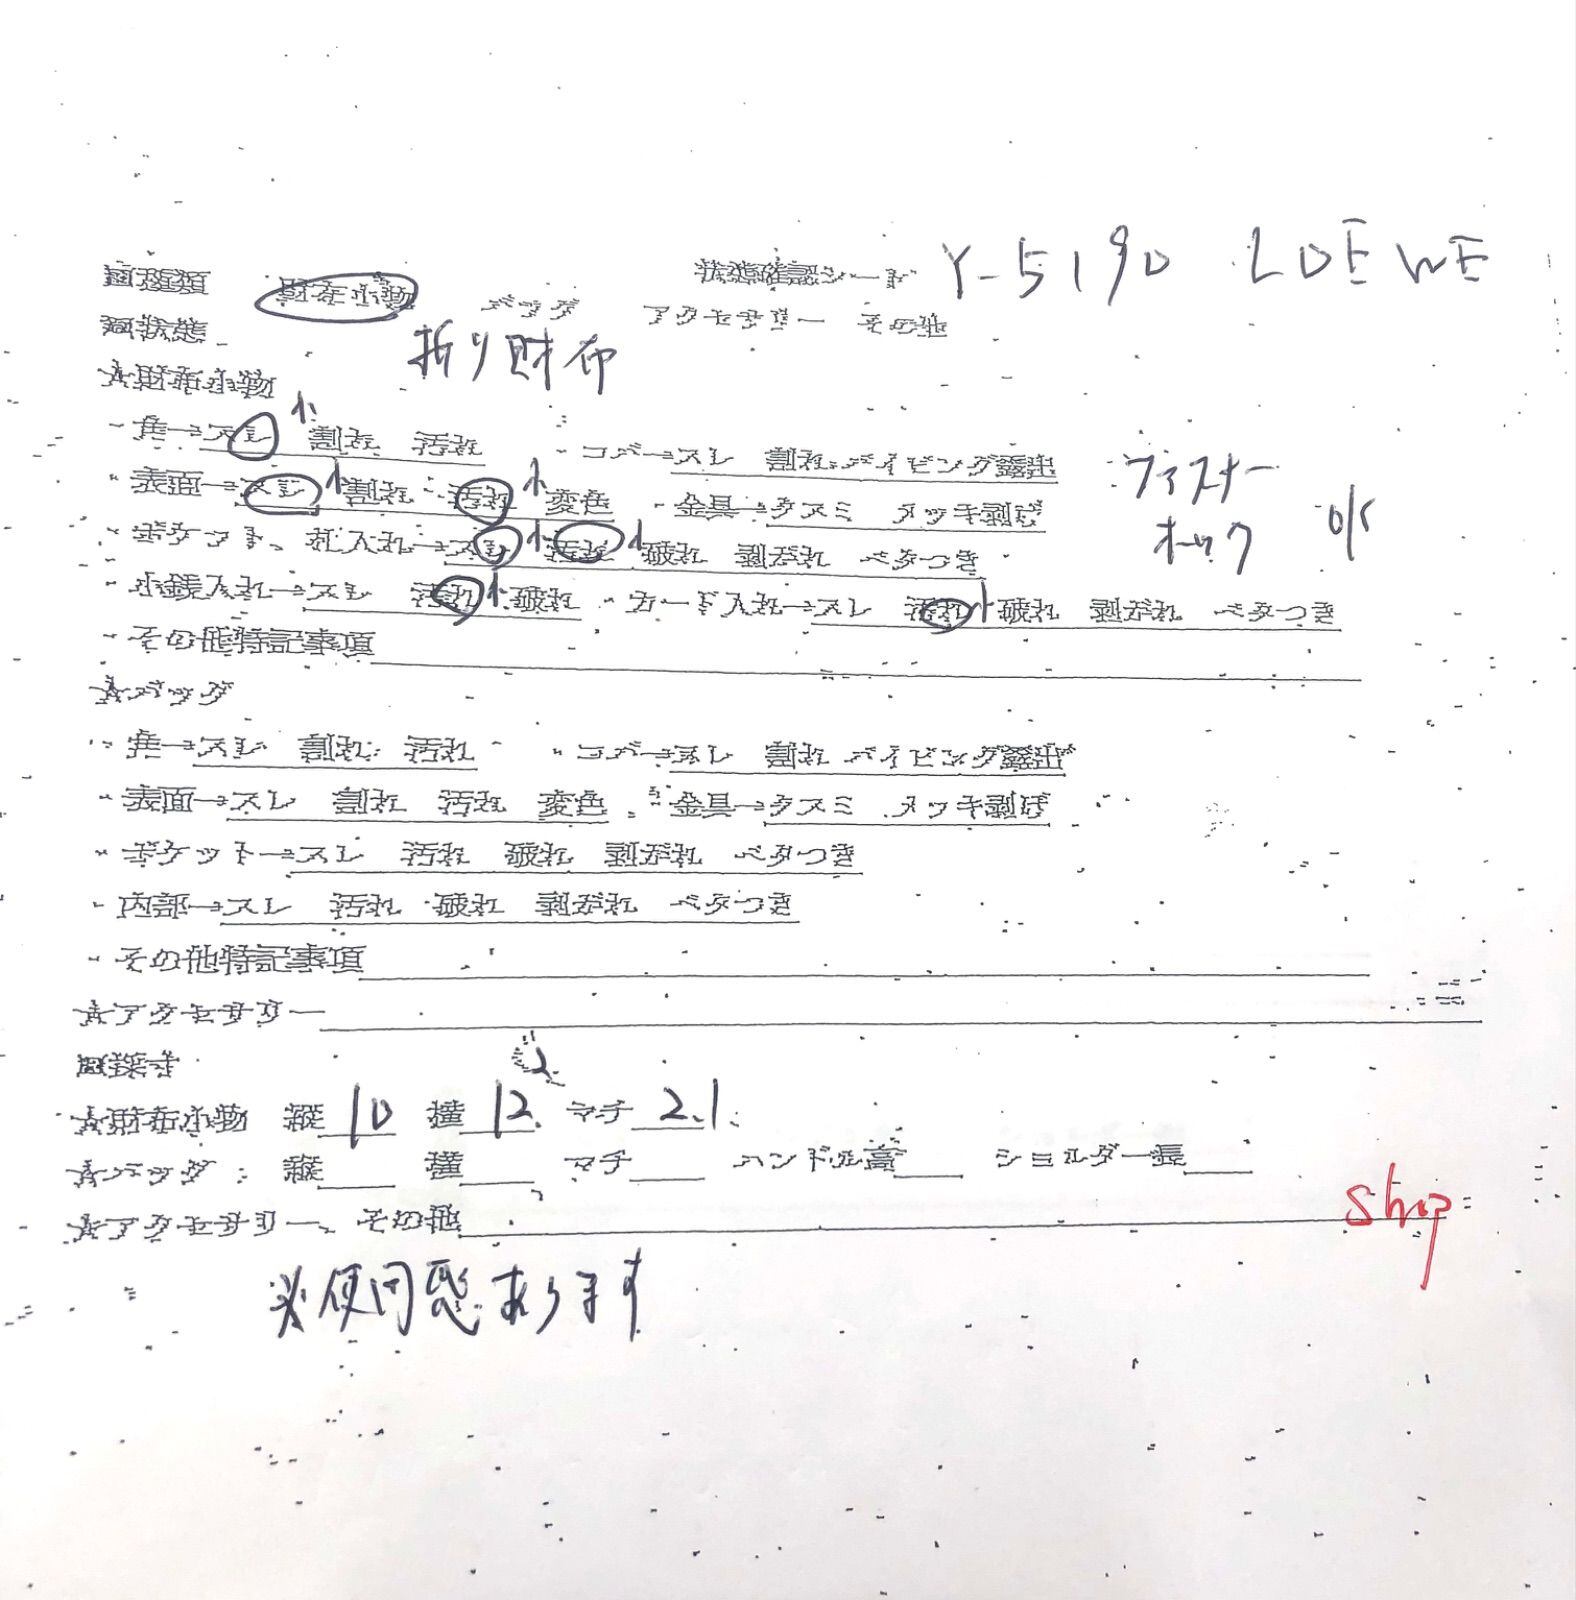 状態確認シート Y-5190 LOEWE
■種類 財布小物 バッグ アクセサリー その他
■状態 折り財布
★財布小物
・角→スレ 小 割れ 汚れ ・コバ→スレ 割れ パイピング露出
・表面→スレ 小 割れ 汚れ 小 変色 ・金具→クスミ メッキ剥げ ファスナー
・ポケット、札入れ→スレ 小 汚れ 小 破れ 剥がれ ベタつき ホック O/K
・小銭入れ→スレ 汚れ 小 破れ ・カード入れ→スレ 汚れ 小 破れ 剥がれ ベタつき
・その他特記事項
★バッグ
・角→スレ 割れ 汚れ ・コバ→スレ 割れ パイピング露出
・表面→スレ 割れ 汚れ 変色 ・金具→クスミ メッキ剥げ
・ポケット→スレ 汚れ 破れ 剥がれ ベタつき
・内部→スレ 汚れ 破れ 剥がれ ベタつき
・その他特記事項
★アクセサリー
■採寸
★財布小物 縦10 横12 マチ2.1
★バッグ 縦 横 マチ ハンドル高 ショルダー長
★アクセサリー、その他
shop
※使用感あります